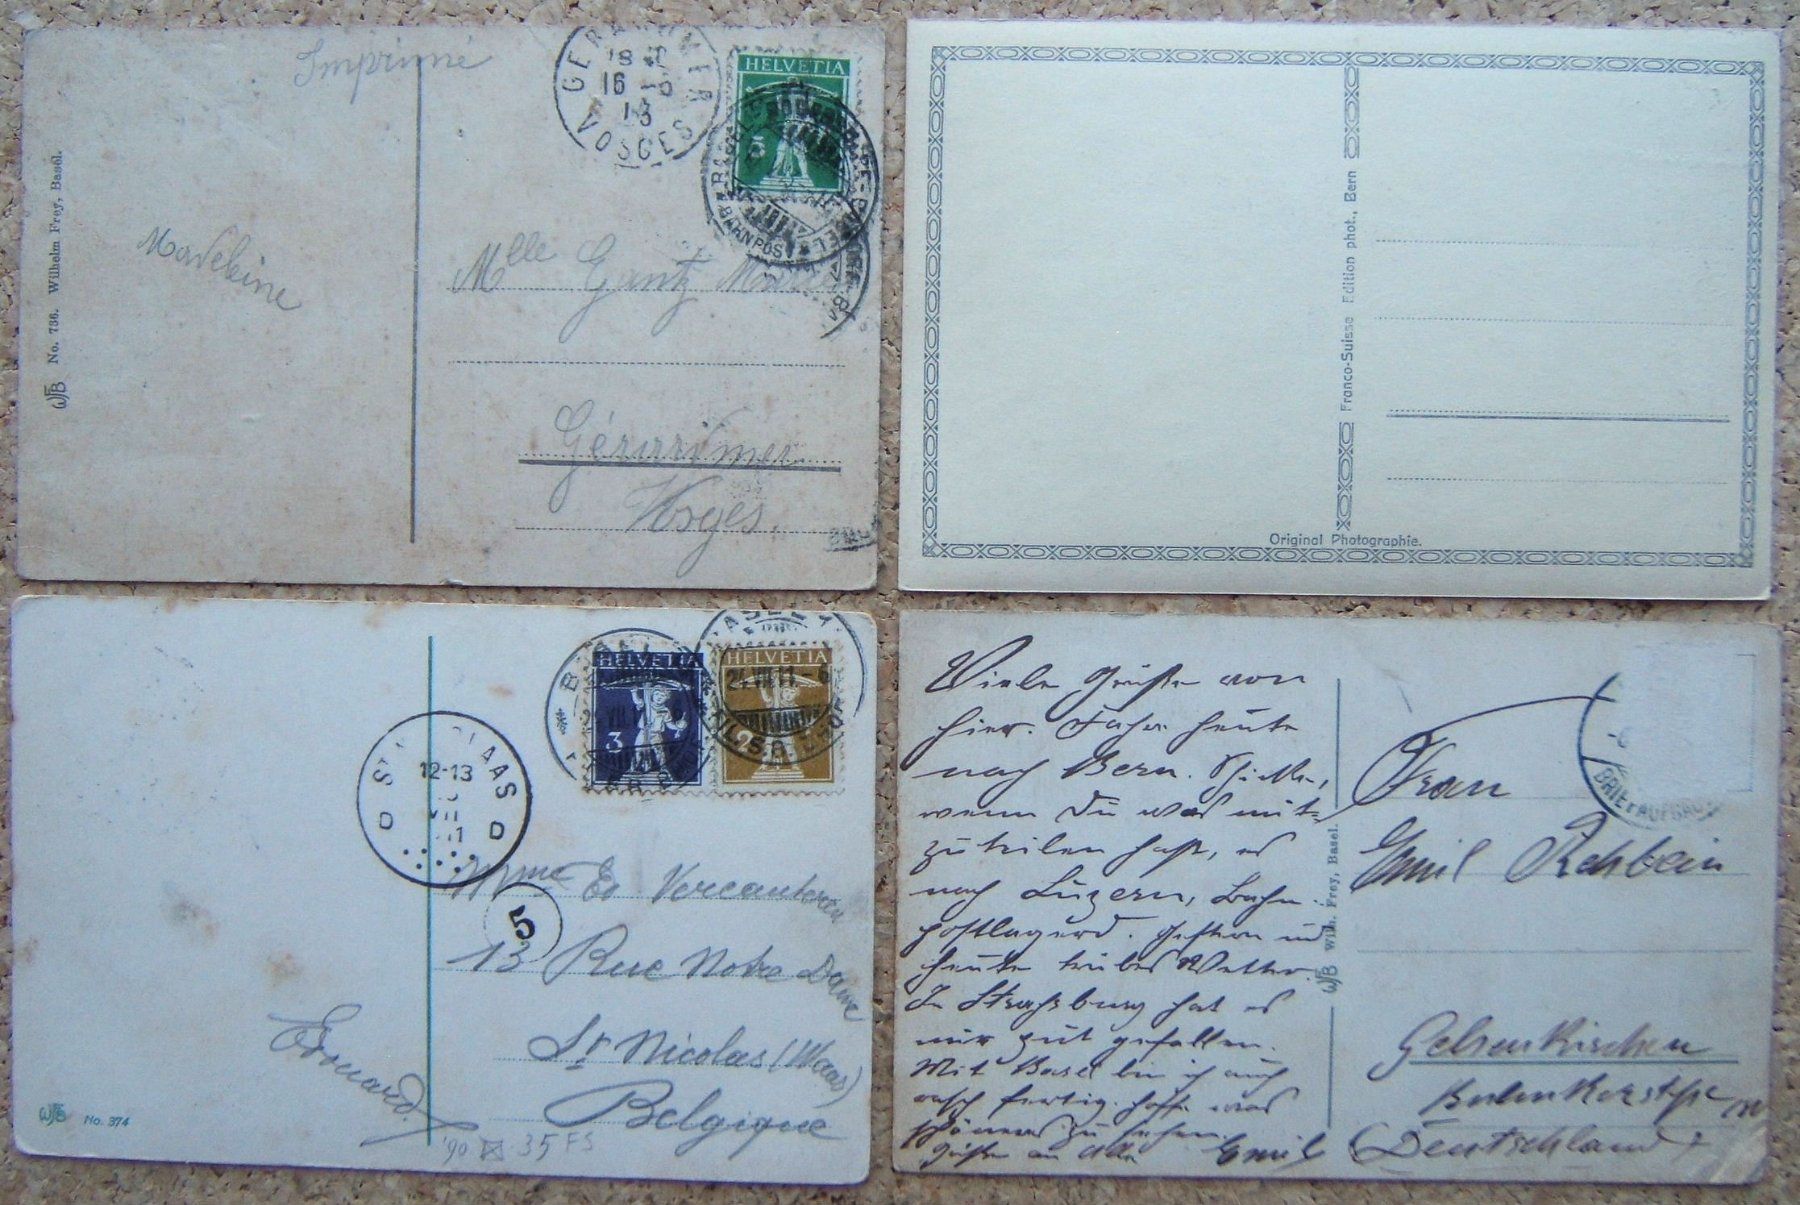 Imprimé
GERARDMER
16 -6
13
VOSGES
HELVETIA
5
BAHNPOST
No. 736. Wilhelm Frey, Basel.
Madeleine
Mlle Gantz
Gérardmer
Vosges.
Franco-Suisse Edition phot., Bern
Original Photographie.
HELVETIA
3
HELVETIA
2
24.VII.11.-6
12-13
VII
11
5
Mme Ed Vercauteren
13 Rue Notre Dame
St Nicolas (Waas)
Belgique
Edouard
WFB No. 374
'90 35 FS
Viele Grüße von
hier. Fahre heute
nach Bern. Schreibe,
wenn Du was mit-
zuteilen hast, es
nach Luzern, Bahn-
postlagernd. Gestern und
heute trübes Wetter.
In Strassburg hat es
mir gut gefallen.
Mit Basel bin ich auch
rasch fertig. Hoffe was
schöneres zu sehen.
Grüße an Alle Emil
WFB Wilh. Frey, Basel.
BRIEFAUFGABE
Frau
Emil Rehbein
Gelsenkirchen
(Deutschland)